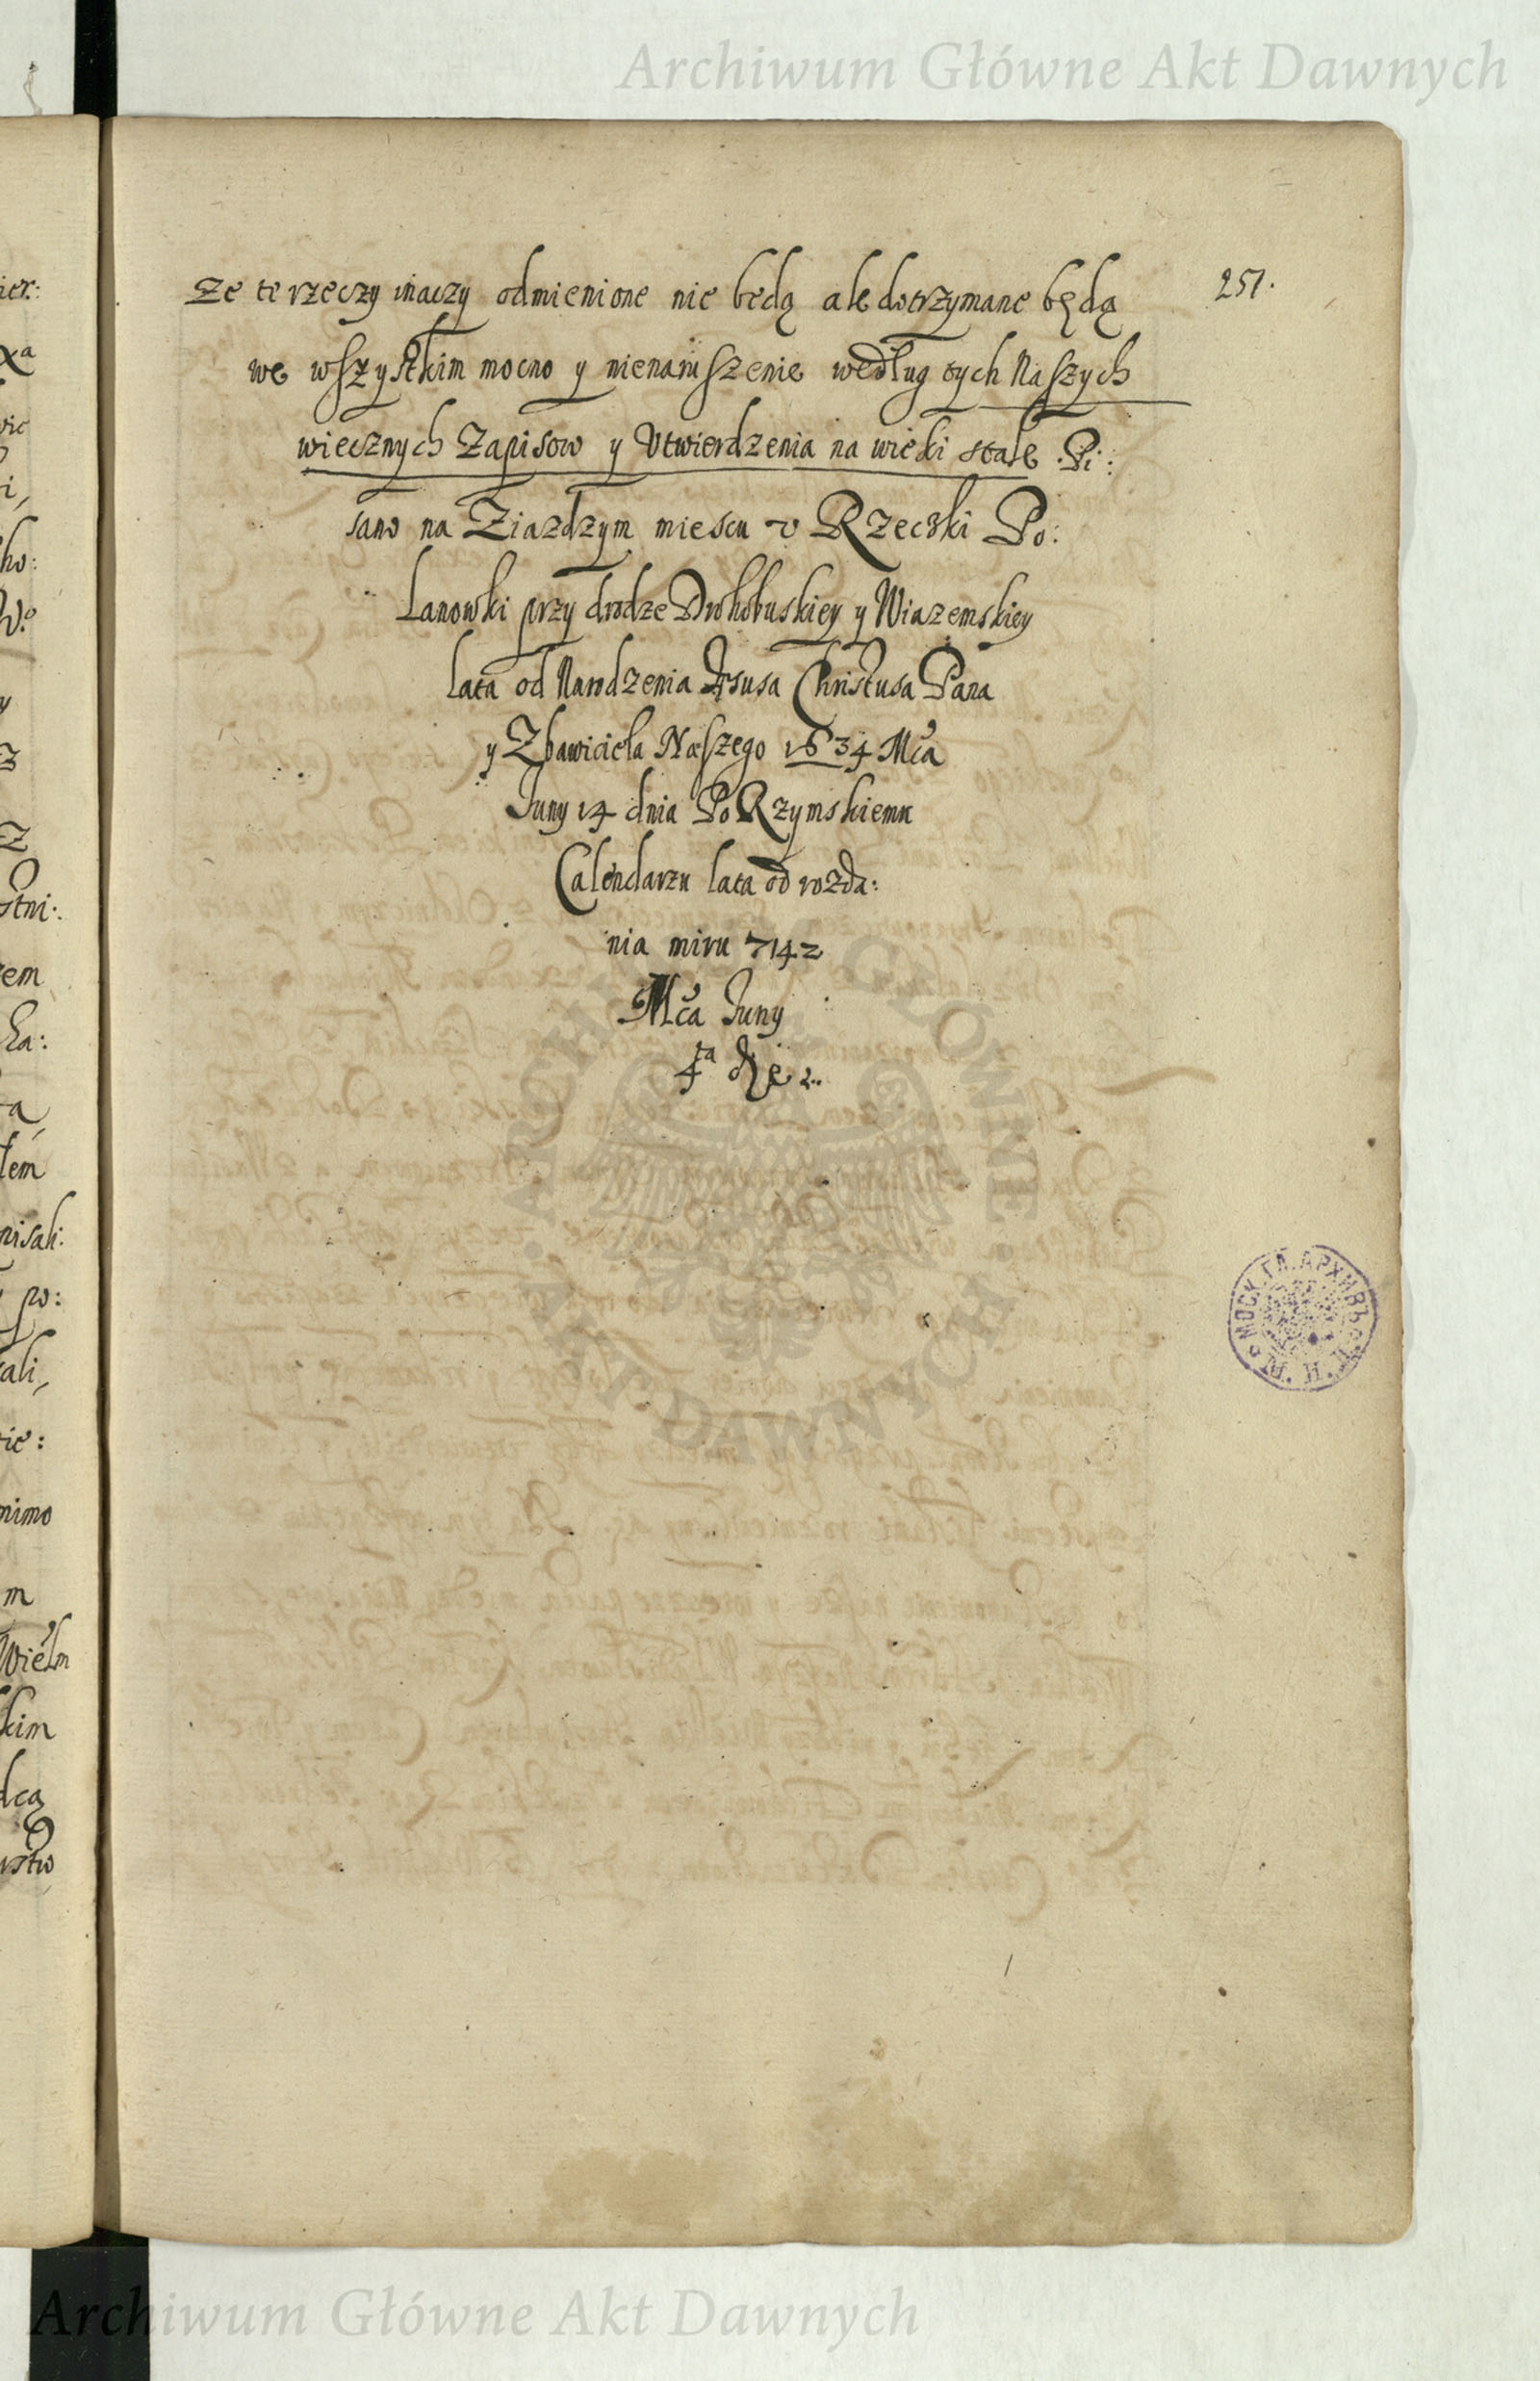 Archiwum Główne Akt Dawnych
251.
Ze te rzeczy inaczy odmienione nie będą ale dotrzymane będą
we wszystkim mocno y nienaruszenie według tych Naszych
wiecznych Zapisow y Utwierdzenia na wieki stale. Pi:
sano na Ziazdzym miescu v Rzeczki Po:
Lanowki przy drodze Drohobuskiey y Wiazemskiey
Lata od Narodzenia Jesusa Christusa Pana
y Zbawiciela Naszego 1634 Mca
Juny 14 dnia Po Rzymskiemu
Calendarzu lata od rozda:
nia miru 7142
Mca Juny
4ta
MOСК. ГЛ. АРХИВЪ
М. И. Д.
ARCHIWUM GŁÓWNE AKT DAWNYCH
Archiwum Główne Akt Dawnych